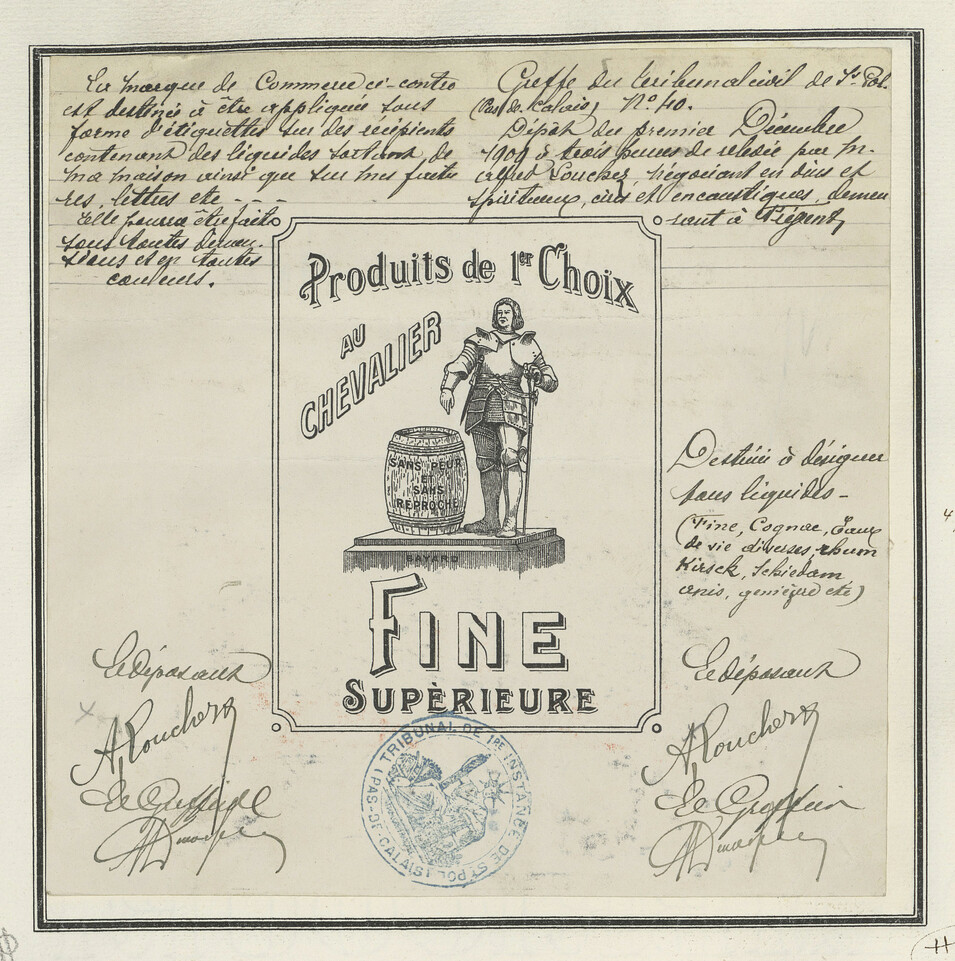 La marque de Commerce ci-contre
est destinée à être appliquée sous
forme d'étiquettes sur des récipients
contenant des liquides sortant de
ma maison ainsi que sur mes factu
res, lettres etc - - -
Elle pourra être faite
sous toutes dimen-
sions et en toutes
couleurs.
Greffe du tribunal civil de St Pol.
(Pas-de-Calais) N° 40.
Dépôt du premier Décembre
1909 à trois heures de relevée par M.
Alfred Loucher, négociant en vins et
spiritueux, cires et encaustiques, demeu
rant à Frégent,
Produits de 1er Choix
AU
CHEVALIER
SANS PEUR
ET
SANS
REPROCHE
BAYARD
FINE
SUPÈRIEURE
Destinée à désigner
tous liquides -
(Fine, Cognac, Eaux
de vie diverses, rhum
Kirsch, Schiedam
anis, genièvre etc)
Le déposant
Le déposant
Le Greffier
TRIBUNAL DE 1RE INSTANCE DE ST POL
(PAS-DE-CALAIS)